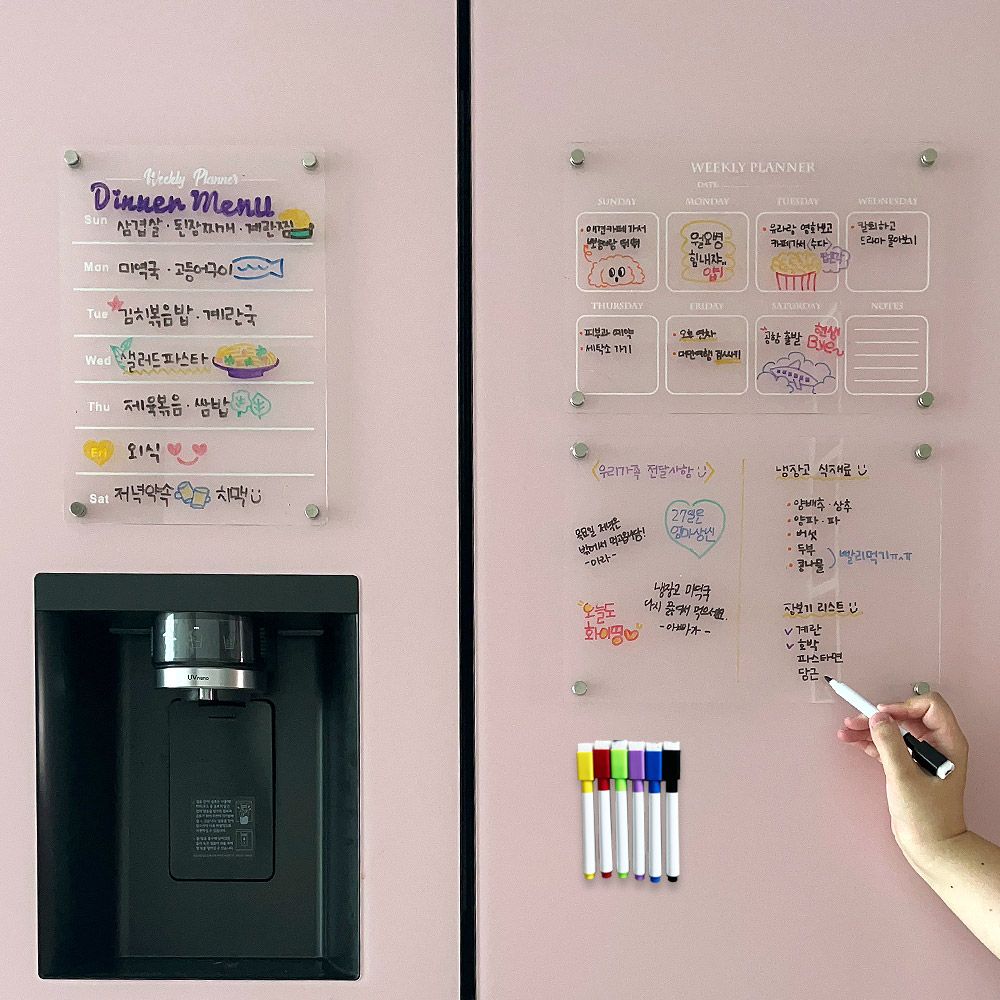 Weekly Planner
Dinner Menu
Sun 삼겹살 · 된장찌개 · 계란찜
Mon 미역국 · 고등어구이
Tue 김치볶음밥 · 계란국
Wed 샐러드파스타
Thu 제육볶음 · 쌈밥
Fri 외식
Sat 저녁약속 치맥
UVnano
WEEKLY PLANNER
DATE
SUNDAY
애견카페 가서
MONDAY
월요병
힘내쟈..
TUESDAY
유라랑 영화보고
카페가서 (수다)
WEDNESDAY
칼퇴하고
드라마 몰아보기
THURSDAY
피부과 예약
세탁소 가기
FRIDAY
오후 연차
대만여행 짐싸기
SATURDAY
공항 출발
현생
Bye~
NOTES
우리가족 전달사항
목요일 저녁은
밖에서 먹고옵니당!
-미라-
27일은
엄마생신
냉장고 미역국
다시 끓여서 먹으세요.
-아빠가-
오늘도
화이띵
냉장고 식재료
양배추 · 상추
양파 · 파
버섯
두부
콩나물
빨리먹기ㅠㅠ
장보기 리스트
계란
호박
파스타면
당근